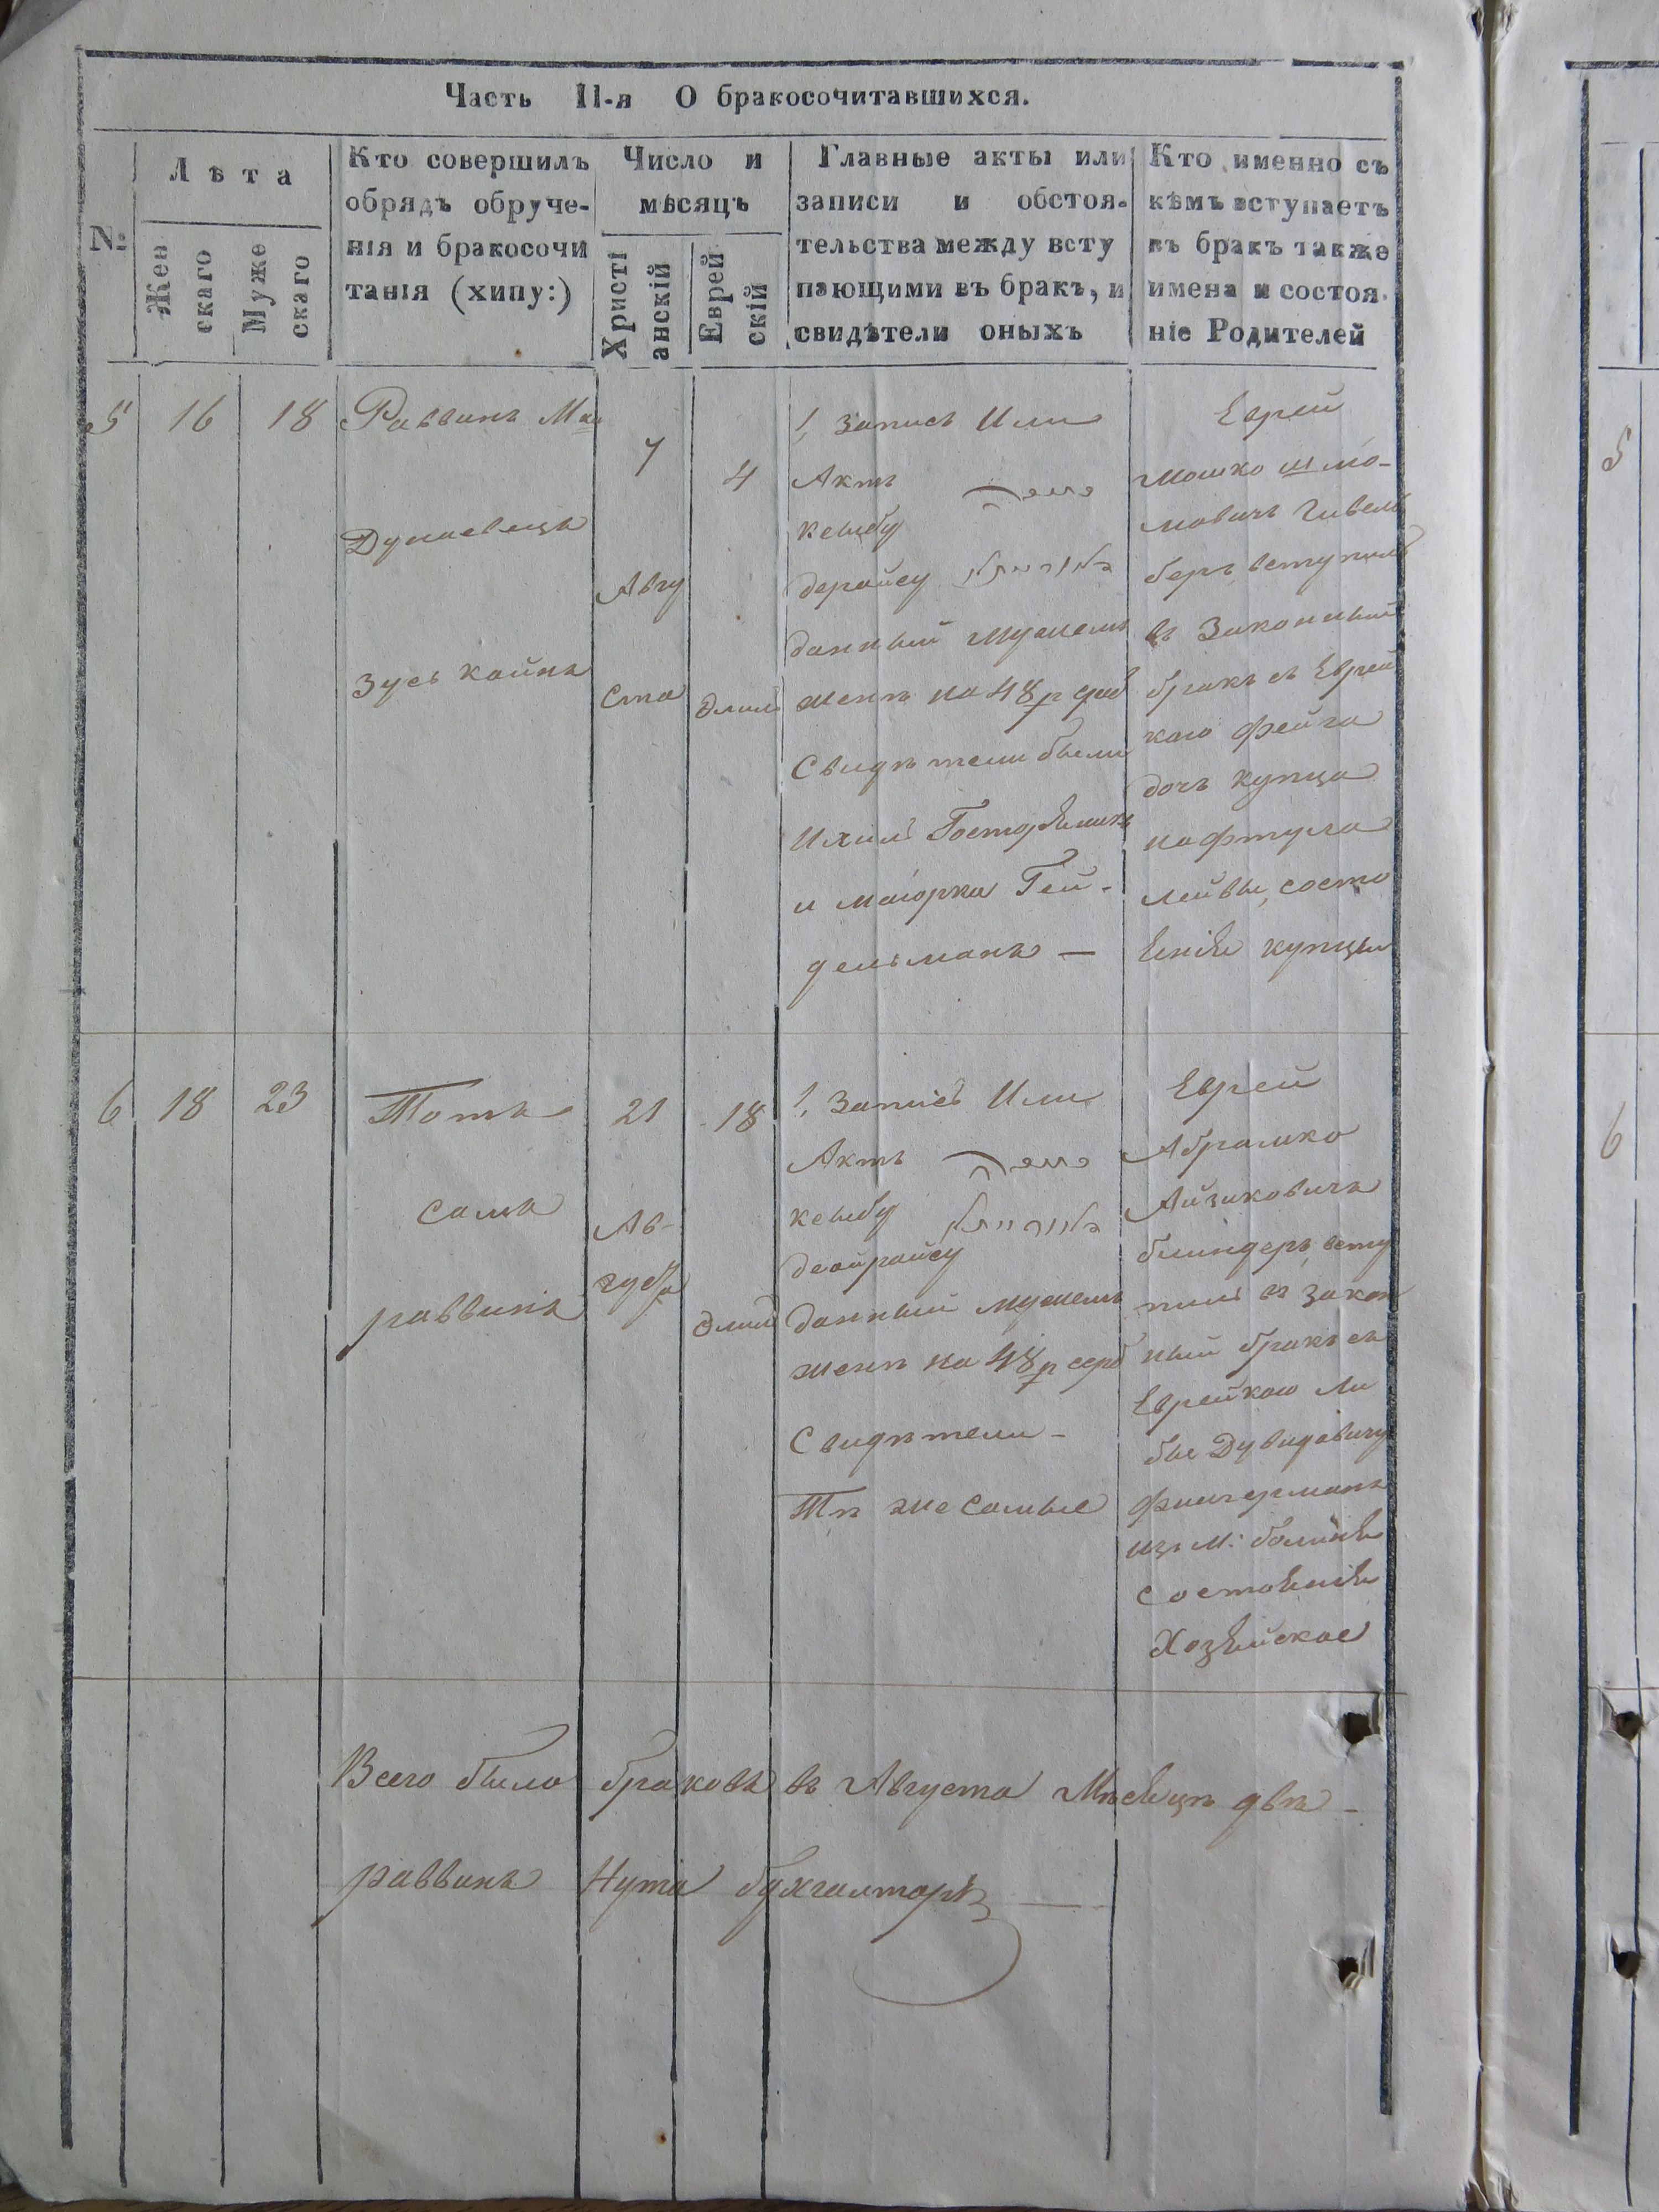 Часть II-я О бракосочитавшихся.
№
Лѣта
Жен
скаго
Муже
скаго
Кто совершилъ
обрядъ обруче-
нія и бракосочи
танія (хипу:)
Число и
мѣсяцъ
Христі
анскій
Еврей
скій
Главные акты или
записи и обстоя-
тельства между всту
пающими въ бракъ, и
свидѣтели оныхъ
Кто именно съ
кѣмъ вступаетъ
въ бракъ также
имена и состоя-
ніе Родителей
5
16
18
Раввинъ М:
Дунаевецъ
Зусь
7
Авгу
ста
4
Элилъ
1, Запись Или
Актъ
кешбу
дерайсу
данный мужемъ
женѣ на 48 р
Свидѣтели были
Ихиль
и Маіорка Гей-
дельманъ —
Еврей
Мошко Шмо-
бергъ вступилъ
въ Законный
бракъ съ Еврей
кою Фейга
дочъ купца
Нафтула
Лейвы, состо
яніе купцы
6
18
23
Тотъ
самъ
раввинъ
21
Ав-
густа
18
Элилъ
1, Запись Или
Актъ
кешбу
деойрайсу
данный мужемъ
женѣ на 48 р сереб
Свидѣтели -
Тѣ же самые
Еврей
Абрамко
Айзиковичъ
блиндеръ, всту
пилъ въ закон
ный бракъ съ
Еврейкою Ли
бые Дувидовичу
изъ м:
Состояніе
Хозяйское
Всего было браковъ въ Августа Мѣсяцѣ двѣ -
раввинъ Нута бухгалтеръ
5
6